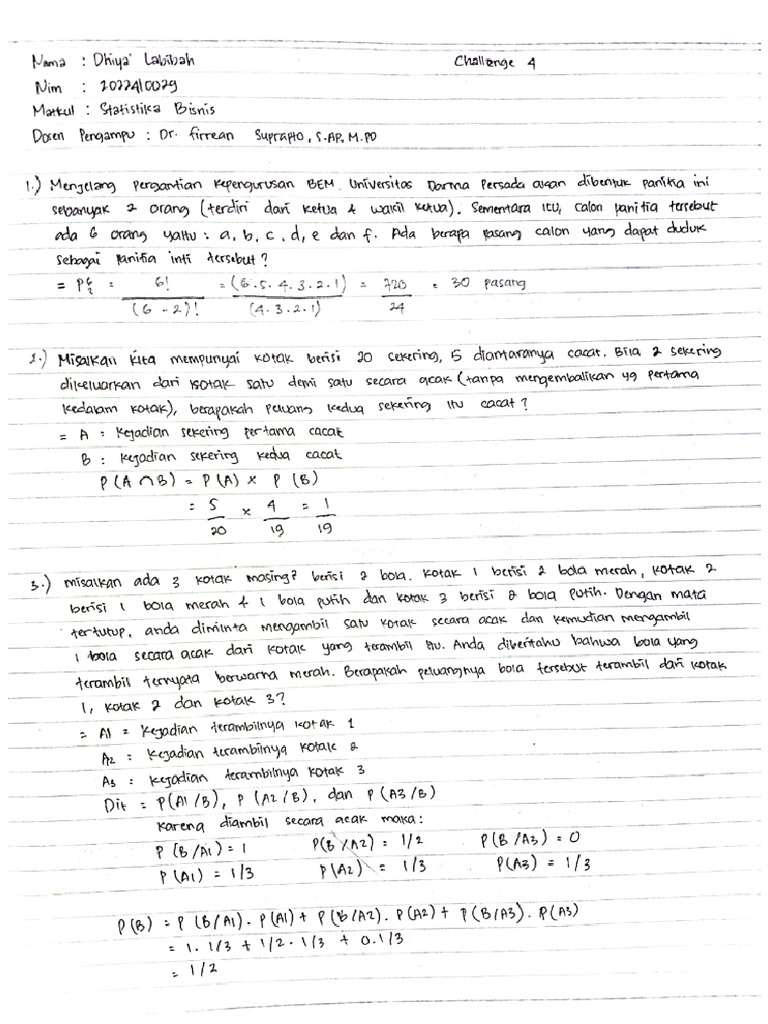 Nama : Dhiya' Labibah Challenge 4
Nim : 2022410029
Matkul : Statistika Bisnis
Dosen Pengampu : Dr. Firrean Suprapto, S.AP, M.PD
1.) Menjelang pergantian kepengurusan BEM Universitas Darma Persada akan dibentuk panitia ini
sebanyak 2 orang (terdiri dari ketua & wakil ketua). Sementara itu, calon panitia tersebut
ada 6 orang yaitu : a, b, c, d, e dan f. Ada berapa pasang calon yang dapat duduk
sebagai panitia inti tersebut ?
= P⁶₂ = 6! / (6 - 2)! = (6.5.4.3.2.1) / (4.3.2.1) = 720 / 24 = 30 pasang
2.) Misalkan kita mempunyai kotak berisi 20 sekering, 5 diantaranya cacat. Bila 2 sekering
dikeluarkan dari kotak satu demi satu secara acak (tanpa mengembalikan yg pertama
kedalam kotak), berapakah peluang kedua sekering itu cacat ?
= A : kejadian sekering pertama cacat
B : kejadian sekering kedua cacat
P (A ∩ B) = P (A) x P (B)
= 5/20 x 4/19 = 1/19
3.) misalkan ada 3 kotak masing² berisi 2 bola. kotak 1 berisi 2 bola merah, kotak 2
berisi 1 bola merah & 1 bola putih dan kotak 3 berisi 2 bola putih. Dengan mata
tertutup, anda diminta mengambil satu kotak secara acak dan kemudian mengambil
1 bola secara acak dari kotak yang terambil itu. Anda diberitahu bahwa bola yang
terambil ternyata berwarna merah. Berapakah peluangnya bola tersebut terambil dari kotak
1, kotak 2 dan kotak 3?
= A1 = kejadian terambilnya kotak 1
A2 = kejadian terambilnya kotak 2
A3 = kejadian terambilnya kotak 3
Dit = P(A1/B), P (A2/B), dan P (A3/B)
karena diambil secara acak maka :
P (B/A1) = 1 P(B/A2) = 1/2 P (B/A3) = 0
P (A1) = 1/3 P(A2) = 1/3 P(A3) = 1/3
P(B) = P (B/A1). P(A1) + P (B/A2). P(A2) + P(B/A3). P(A3)
= 1. 1/3 + 1/2 . 1/3 + 0.1/3
= 1/2